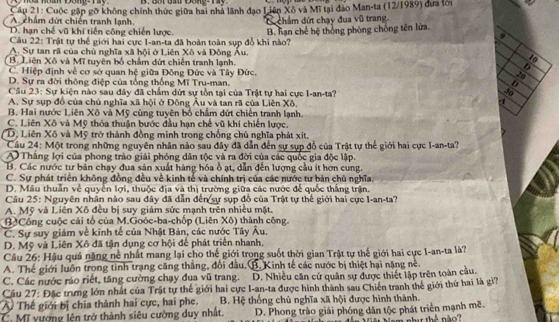 A. hòa hoãn Đông-Tây. B. đối đầu Đông-Tây.
Câu 21: Cuộc gặp gỡ không chính thức giữa hai nhà lãnh đạo Liên Xô và Mĩ tại đảo Man-ta (12/1989) đưa tới
A. chấm dứt chiến tranh lạnh. C. chấm dứt chạy đua vũ trang.
D. hạn chế vũ khí tiến công chiến lược. B. hạn chế hệ thống phòng chống tên lửa.
Câu 22: Trật tự thế giới hai cực I-an-ta đã hoàn toàn sụp đổ khi nào?
A. Sự tan rã của chủ nghĩa xã hội ở Liên Xô và Đông Âu.
B. Liên Xô và Mĩ tuyên bố chấm dứt chiến tranh lạnh.
C. Hiệp định về cơ sở quan hệ giữa Đông Đức và Tây Đức.
D. Sự ra đời thông điệp của tổng thống Mĩ Tru-man.
Câu 23: Sự kiện nào sau đây đã chấm dứt sự tồn tại của Trật tự hai cực I-an-ta?
A. Sự sụp đổ của chủ nghĩa xã hội ở Đông Âu và tan rã của Liên Xô.
B. Hai nước Liên Xô và Mỹ cùng tuyên bố chấm dứt chiến tranh lạnh.
C. Liên Xô và Mỹ thỏa thuận bước đầu hạn chế vũ khí chiến lược.
D. Liên Xô và Mỹ trở thành đồng minh trong chống chủ nghĩa phát xít.
Câu 24: Một trong những nguyên nhân nào sau đây đã dẫn đến sự sụp đổ của Trật tự thế giới hai cực I-an-ta?
A. Thắng lợi của phong trào giải phóng dân tộc và ra đời của các quốc gia độc lập.
B. Các nước tư bản chạy đua sản xuất hàng hóa ồ ạt, dẫn đến lượng cầu ít hơn cung.
C. Sự phát triển không đồng đều về kinh tế và chính trị của các nước tư bản chủ nghĩa.
D. Mâu thuẫn về quyền lợi, thuộc địa và thị trường giữa các nước đế quốc thắng trận.
Câu 25: Nguyên nhân nào sau đây đã dẫn đến sự sụp đổ của Trật tự thế giới hai cực I-an-ta?
A. Mỹ và Liên Xô đều bị suy giảm sức mạnh trên nhiều mặt.
B. Công cuộc cải tổ của M.Goóc-ba-chốp (Liên Xô) thành công.
C. Sự suy giảm về kinh tế của Nhật Bản, các nước Tây Âu.
D. Mỹ và Liên Xô đã tận dụng cơ hội để phát triển nhanh.
Câu 26: Hậu quả nặng nề nhất mang lại cho thế giới trong suốt thời gian Trật tự thế giới hai cực I-an-ta là?
A. Thế giới luôn trong tình trạng căng thẳng, đối đầu. B. Kinh tế các nước bị thiệt hại nặng nề.
C. Các nước ráo riết, tăng cường chạy đua vũ trang. D. Nhiều căn cứ quân sự được thiết lập trên toàn cầu.
Câu 27: Đặc trưng lớn nhất của Trật tự thế giới hai cực I-an-ta được hình thành sau Chiến tranh thế giới thứ hai là gì?
A. Thế giới bị chia thành hai cực, hai phe. B. Hệ thống chủ nghĩa xã hội được hình thành.
C. Mĩ vươn lên trở thành siêu cường duy nhất. D. Phong trào giải phóng dân tộc phát triển mạnh mẽ.